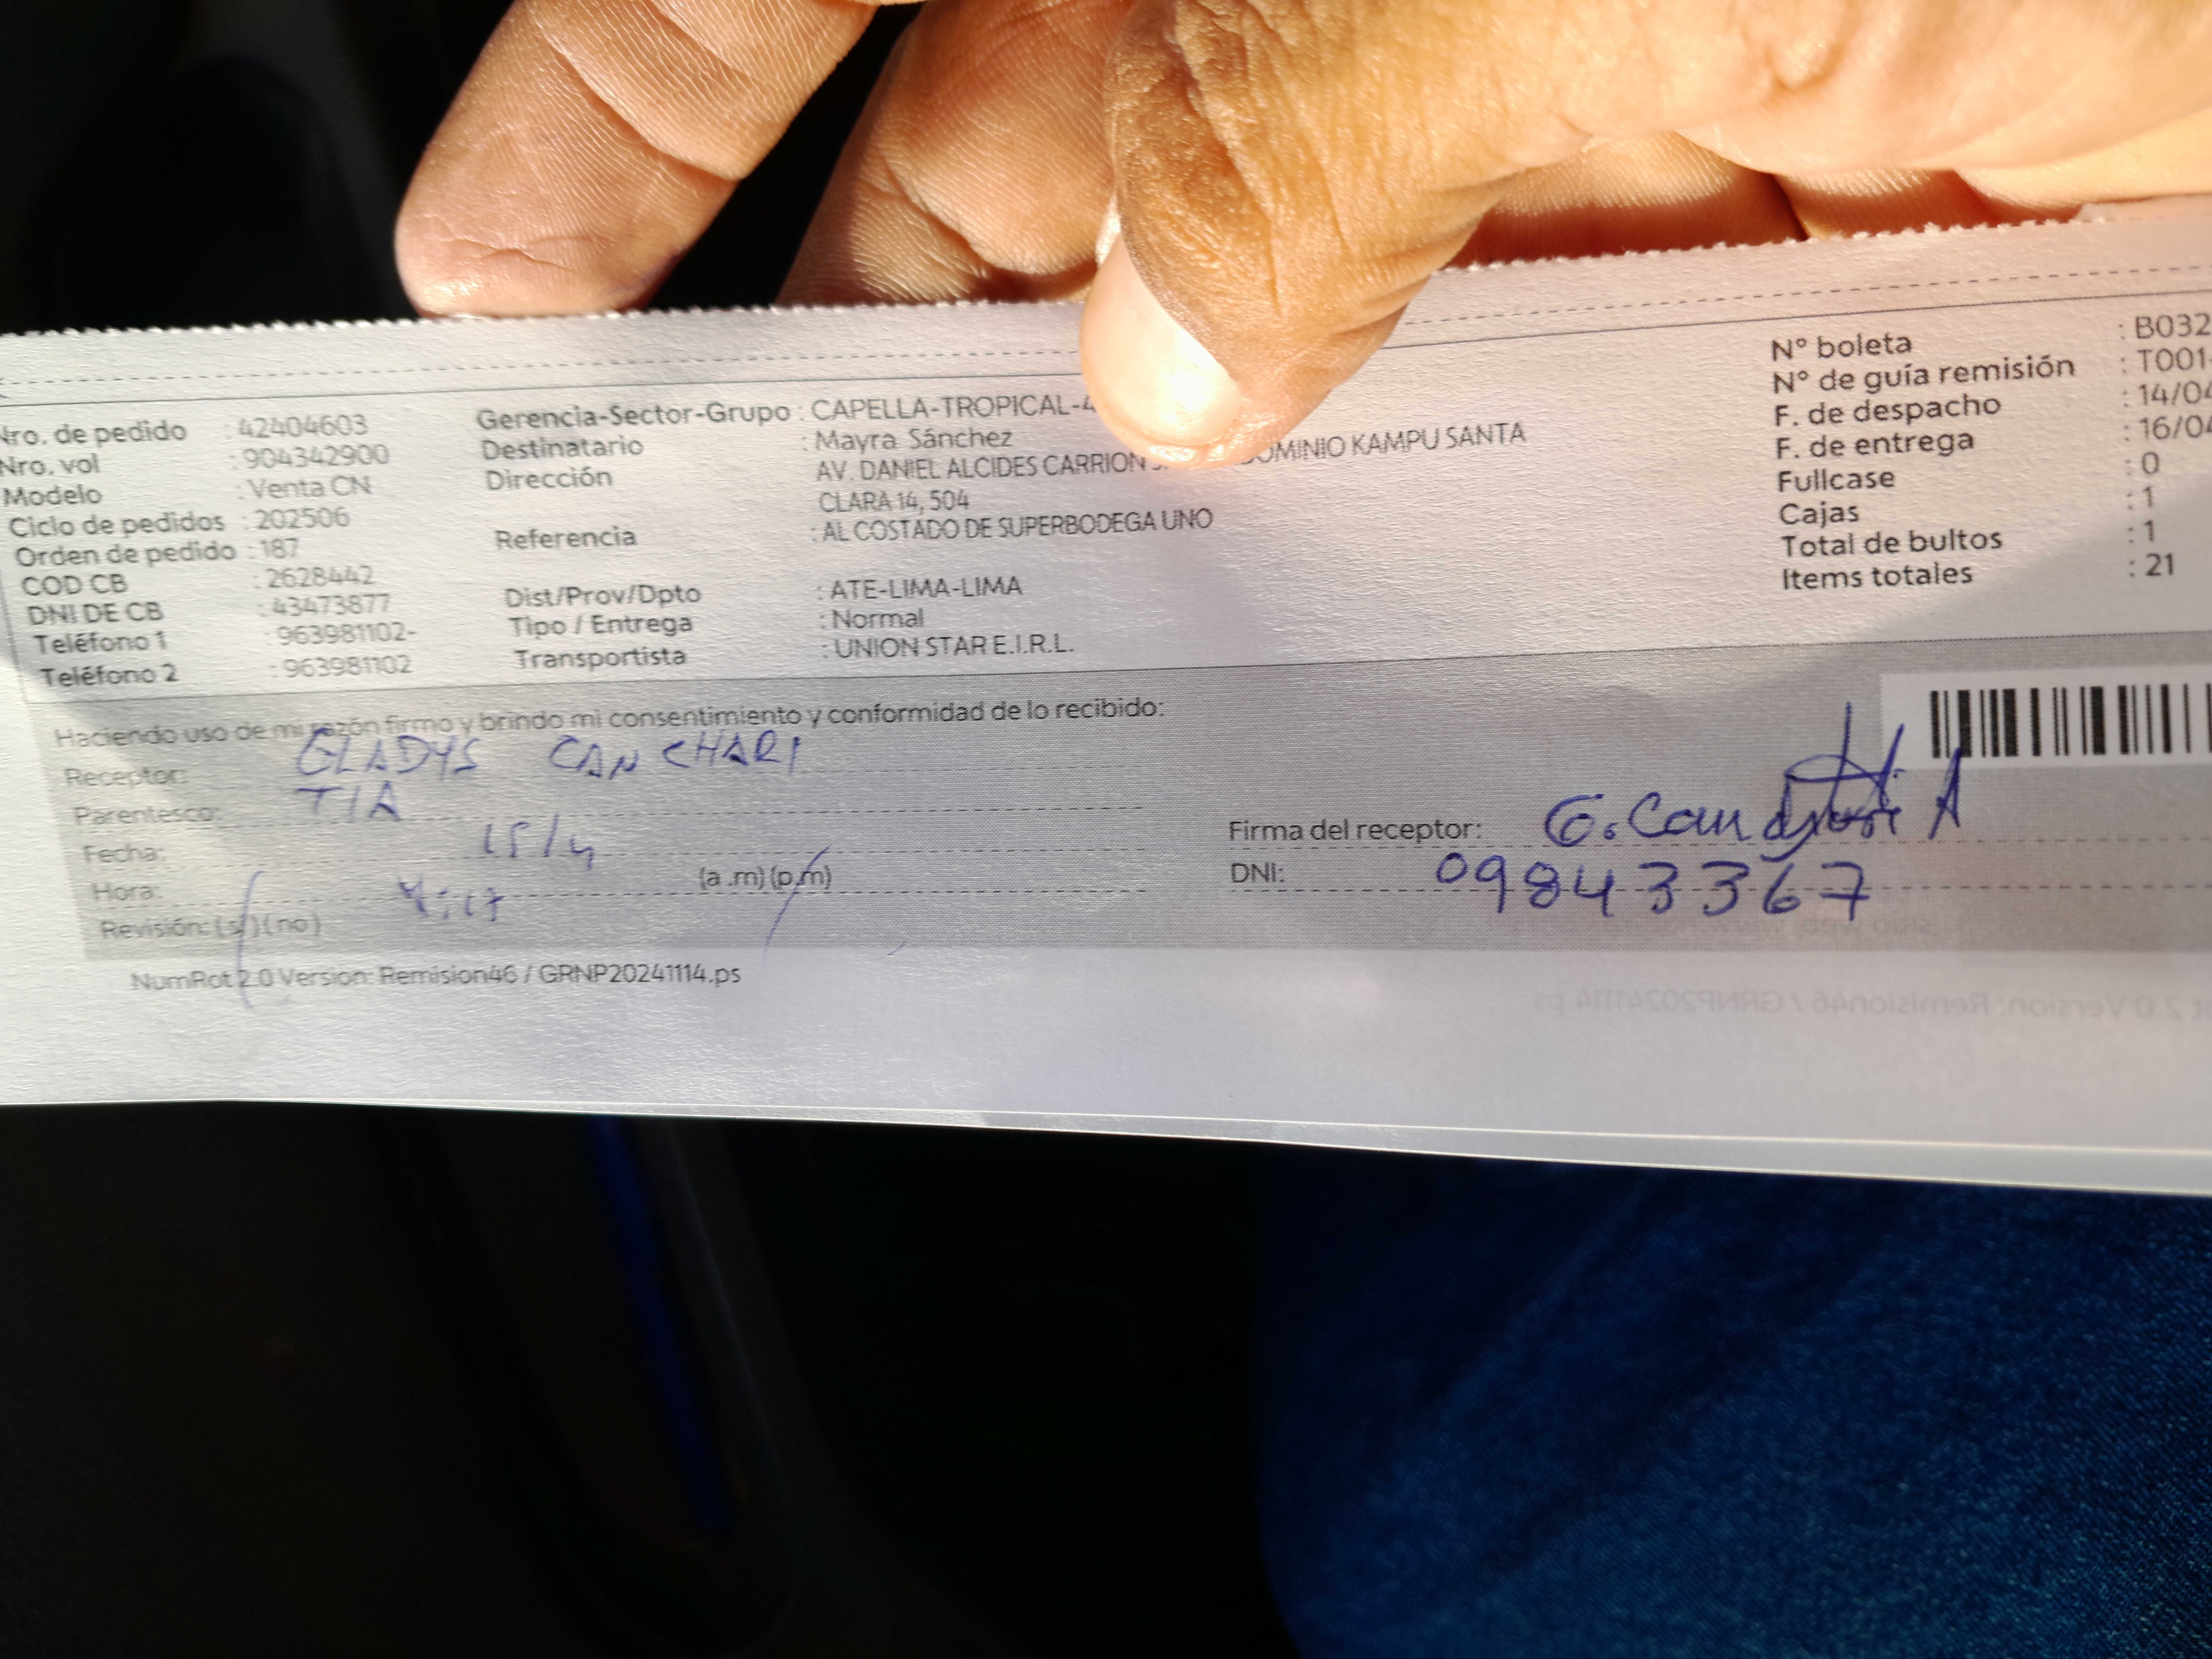 Nro. de pedido : 42404603
Nro. vol : 904342900
Modelo : Venta CN
Ciclo de pedidos : 202506
Orden de pedido : 187
COD CB : 2628442
DNI DE CB : 43473877
Teléfono 1 : 963981102-
Teléfono 2 : 963981102
Gerencia-Sector-Grupo : CAPELLA-TROPICAL-4
Destinatario : Mayra Sánchez
Dirección AV. DANIEL ALCIDES CARRION OMINIO KAMPU SANTA
CLARA 14, 504
Referencia : AL COSTADO DE SUPERBODEGA UNO
Dist/Prov/Dpto : ATE-LIMA-LIMA
Tipo / Entrega : Normal
Transportista : UNION STAR E.I.R.L.
N° boleta : B032
N° de guía remisión : T001-
F. de despacho : 14/04
F. de entrega : 16/04
Fullcase : 0
Cajas : 1
Total de bultos : 1
Items totales : 21
Haciendo uso de mi razón firmo y brindo mi consentimiento y conformidad de lo recibido:
Receptor: GLADYS CANCHARI
Parentesco: TIA
Fecha: 15/4
Hora: (a .m) (p.m)
Revisión: (si) (no)
Firma del receptor:
DNI: 09843367
NumRot 2.0 Version: Remision46 / GRNP20241114.ps